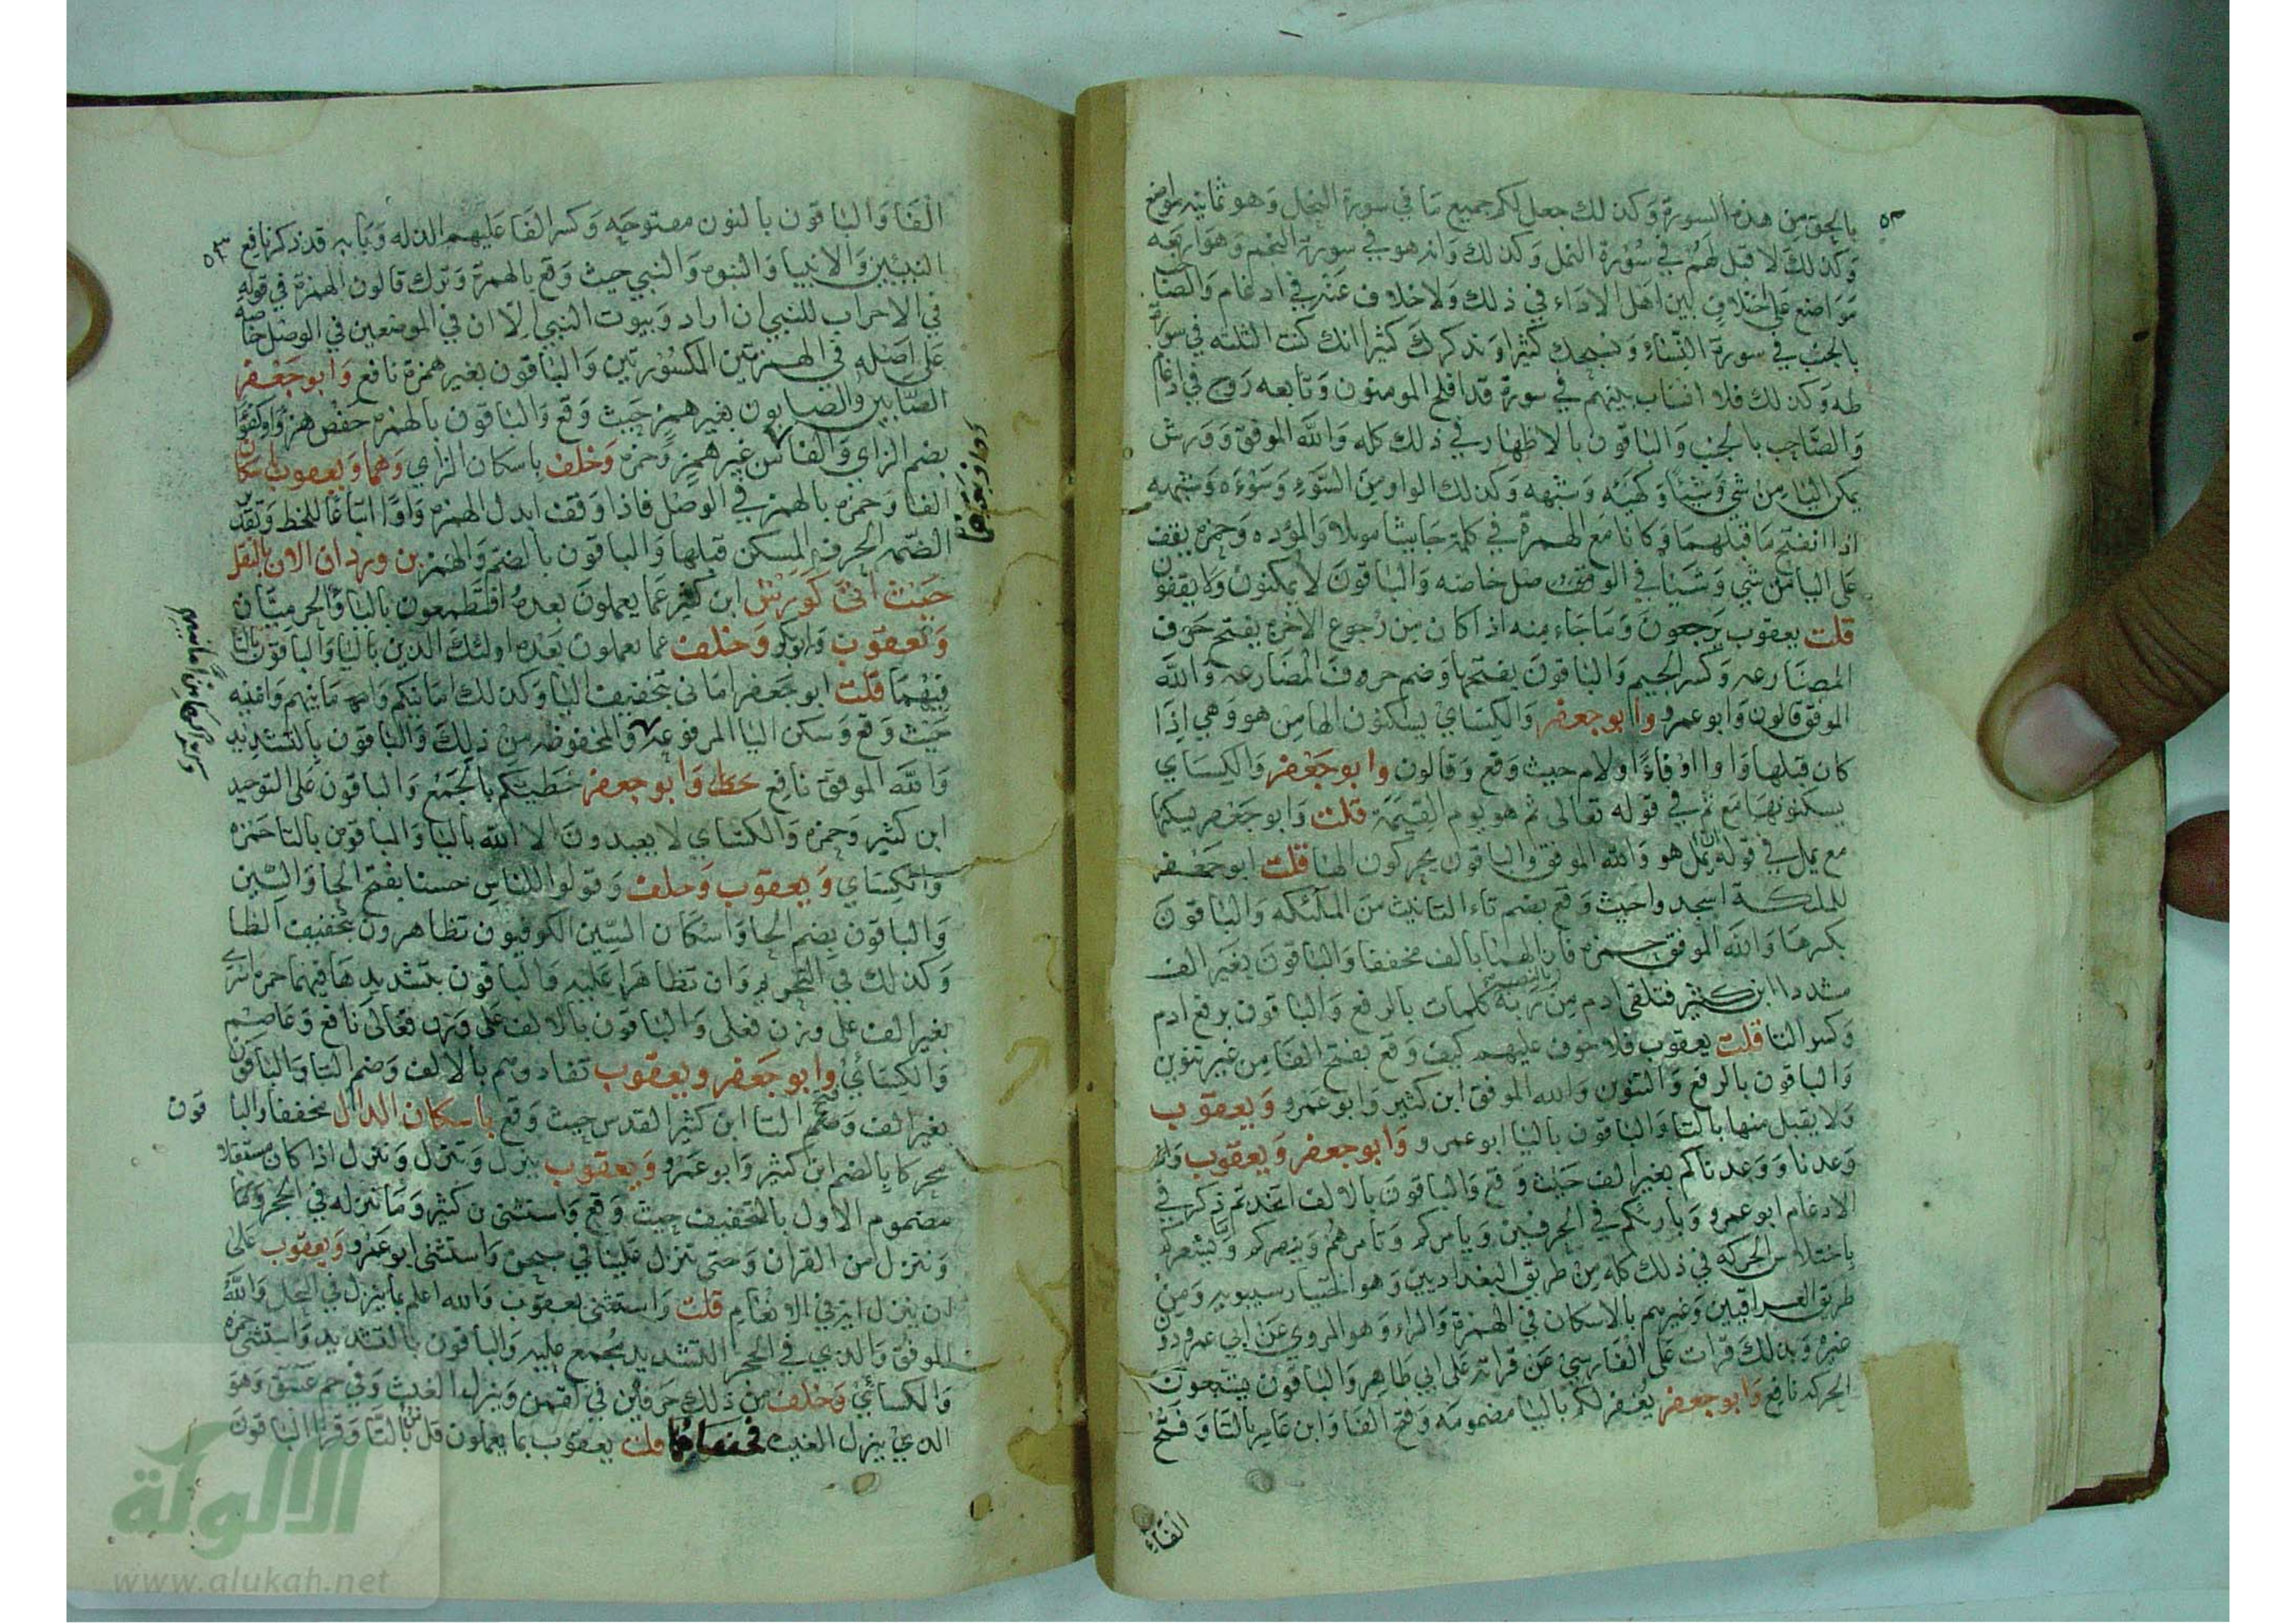 ٥٢
بالحق من هذه السورة وكذلك جعل لكم جميع ما في سورة النحل وهو ثمانيه مواضع
وكذلك لا قبل لهم في سورة النمل وكذلك وانه هو في سورة النجم وهو اربعه
مواضع على اختلاف بين اهل الاداء في ذلك ولا خلاف عنه في ادغام والصاحب
بالجنب في سورة النساء ونسبحك كثيرا ونذكرك كثيرا انك كنت الثلثه في سورة
طه وكذلك فلا انساب بينهم في سورة قد افلح المومنون وتابعه روح في ادغام
والصاحب بالجنب والباقون بالاظهار في ذلك كله والله الموفق وورش
يمكن اليا من شي وشيئا وكهيئه وشبهه وكذلك الواو من السوء وسوءه وشبهه
اذا انفتح ما قبلهما وكانا مع الهمزة في كلمة حاشا موئلا والموده وحمزه يقف
على اليا من شي وشيئا في الوصل خاصه والباقون لا يمكنون ولا يقفون
قلت يعقوب يرجعون وما جاء منه اذا كان من رجوع الاخره بفتح حرف
المضارعه وكسر الجيم والباقون بفتحها وضم حروف المضارعه والله
الموفق قالون وابو عمرو وابو جعفر والكساي يسكنون الها من هو وهي اذا
كان قبلها واوا او فاءا او لام حيث وقع وقالون وابو جعفر والكساي
يسكنونها مع ثم في قوله تعالى ثم هو يوم القيمة قلت وابو جعفر يسكنها
مع يمل في قوله ان يمل هو والله الموفق والباقون يحركون الها قلت ابو جعفر
للملئكة اسجدوا حيث وقع بضم تاء التانيث من الملئكه والباقون
بكسرها والله الموفق حمزه فازالهما بالف مخففا والباقون بغير الف
مشددا ابن كثير فتلقى ادم بالنصب من ربه كلمات بالرفع والباقون برفع ادم
وكسر التا قلت يعقوب فلا خوف عليهم كيف وقع بفتح الفا من غير تنوين
والباقون بالرفع والتنوين والله الموفق ابن كثير وابو عمرو ويعقوب
ولا يقبل منها بالتا والباقون باليا ابو عمرو وابو جعفر ويعقوب واذ
وعدنا ووعدناكم بغير الف حيث وقع والباقون بالالف اتخذتم ذكر في
الادغام ابو عمرو وبارئكم في الحرفين ويامركم وتامرهم وينصركم ويشعركم
باختلاس الحركه في ذلك كله من طريق البغداديين وهو اختيار سيبويه ومن
طريق العراقيين وغيرهم بالاسكان في الهمزة والراء وهو المروي عن ابي عمرو دون
غيره وبذلك قرات على الفارسي عن قراته على ابي طاهر والباقون يشبعون
الحركه نافع وابو جعفر يغفر لكم باليا مضمومه وفتح الفا وابن عامر بالتا وفتح
الفاء
٥٣
الفا والباقون بالنون مفتوحه وكسر الفا عليهم الذله وبابه قد ذكر نافع
النبيئين والانبيا والنبوه والنبي حيث وقع بالهمزة وترك قالون الهمزة في قوله
في الاحزاب للنبي ان اراد وبيوت النبي الا ان في الموضعين في الوصل خاصه
على اصله في الهمزتين المكسورتين والباقون بغير همزة نافع وابو جعفر
الصابين والصابون بغير همز حيث وقع والباقون بالهمزه حفص هزوا وكفوا
بضم الزاي والفا من غير همز وحمزه وخلف باسكان الزاي وهما ويعقوب باسكان
الفا وحمزه بالهمز في الوصل فاذا وقف ابدل الهمزه واوا اتباعا للخط وتقدير
الضمه الحرف المسكن قبلها والباقون بالضم والهمز بن وردان الان بالنقل
حيث اتى كورش ابن كثير عما يعملون بعده افتطمعون باليا والحرميان
ويعقوب وابو بكر وخلف عما يعملون بعده اولئك الذين باليا والباقون بالتا
فيهما قلت ابو جعفر اماني بتخفيف اليا وكذلك امانيكم وامانيهم وامنيه
حيث وقع وسكن اليا المرفوعه والمخفوظه من ذلك والباقون بالتشديد
وكسر الها من امانيهم
والله الموفق نافع وابو جعفر خطيتكم بالجمع والباقون على التوحيد
ابن كثير وحمزه والكساي لا يعبدون الا الله باليا والباقون بالتا حمزه
والكساي ويعقوب وخلف وقولوا للناس حسنا بفتح الحا والسين
والباقون بضم الحا واسكان السين الكوفيون تظاهرون بتخفيف الظا
وكذلك في التحريم وان تظاهرا عليه والباقون بتشديدها فيهما حمزه اسرى
بغير الف على وزن فعلى والباقون بالالف على وزن فعالى نافع وعاصم
والكسائي وابو جعفر ويعقوب تفادوهم بالالف وضم التا والباقون
بغير الف وفتح التا ابن كثير القدس حيث وقع باسكان الدال مخففا والبا قون
محركا بالضم ابن كثير وابو عمرو ويعقوب ينزل وتنزل وننزل اذا كان مستقبلا
مضموم الاول بالتخفيف حيث وقع واستثنى بن كثير وما ننزله في الحجر وكما
وننزل من القران وحتى تنزل علينا في سبحن واستثنى ابو عمرو ويعقوب على
ان ينزل اية في الانعام قلت واستثنى يعقوب والله اعلم بما ينزل في النحل والله
الموفق والذي في الحجر التشديد مجمع عليه والباقون بالتشديد واستثنى حمزه
والكسائي وخلف من ذلك حرفين في لقمن وينزل الغيث وفي حم عسق وهو
الذي ينزل الغيث فخففاهما قلت يعقوب بما يعملون قل من بالتا وقرا الباقون
الالوكة
www.alukah.net